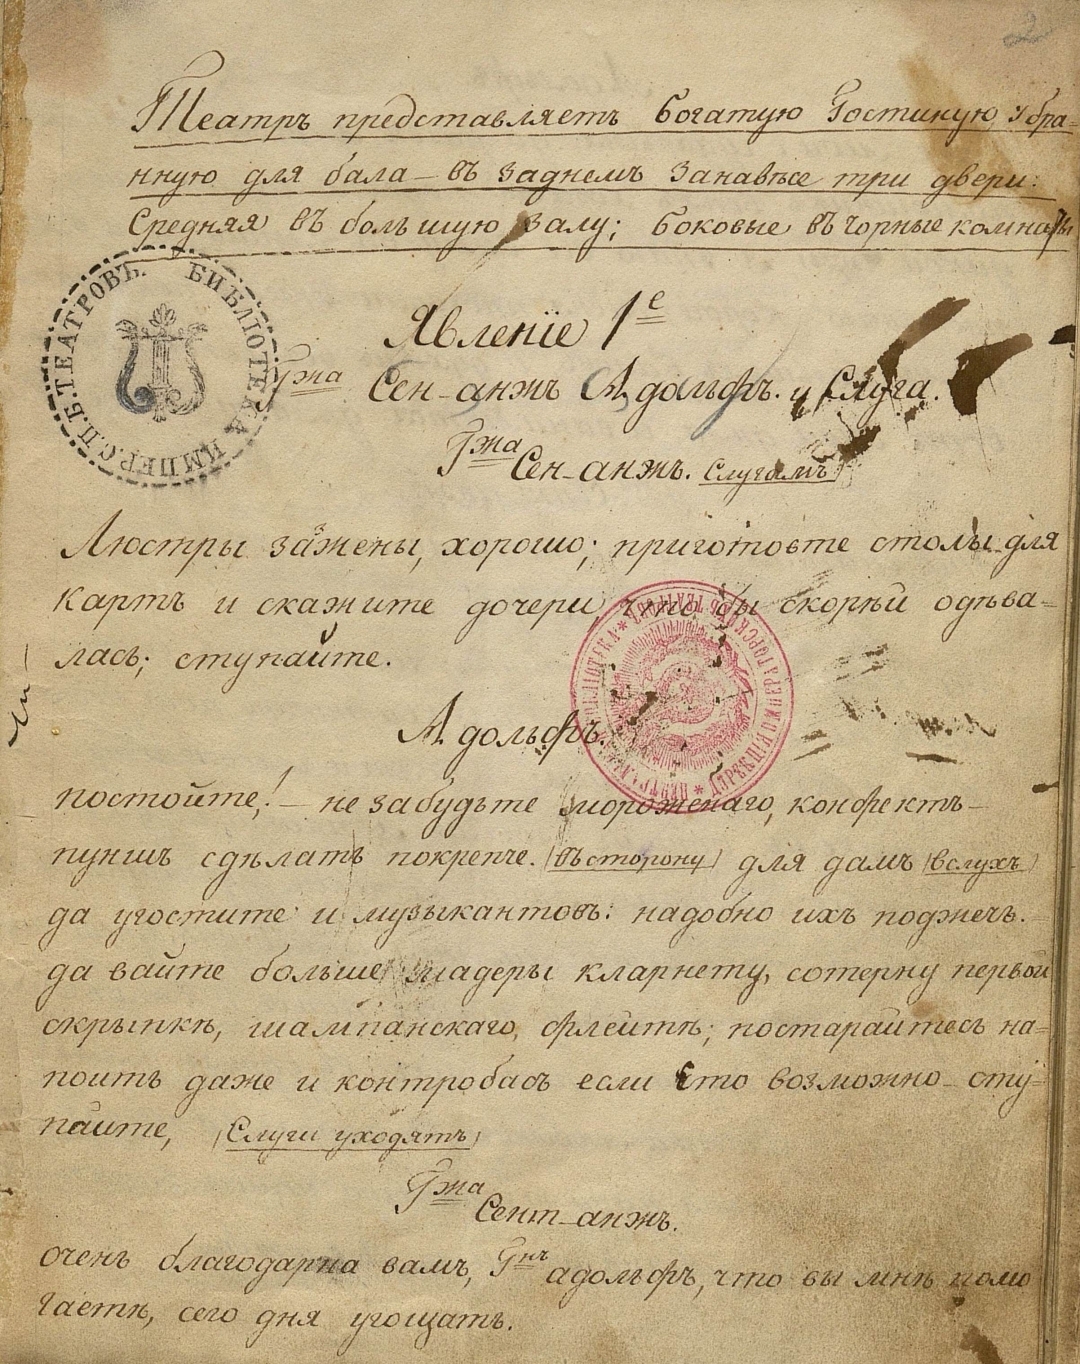 2
Театръ представляетъ богатую Гостиную, убра=
нную для бала — въ заднемъ занавѣсе три двери:
Средняя въ большую залу; боковые въ чорные комнаты
БИБЛІОТЕКА ИМПЕР. С.П.Б. ТЕАТРОВЪ.
Явленіе 1е
Гжа Сен-анжъ Адольфъ. и Слуга.
Гжа Сен-анжъ. Слугамъ
Люстры зажены, хорошо; приготовте столы для
картъ и скажите дочери, что бы скорѣй одѣва=
лась; ступайте.
Адольфъ.
постойте! — не забудьте мороженаго, конфектъ —
пуншъ сдѣлать покрепче. (въ сторону) для дамъ (вслухъ)
да угостите и музыкантовъ: надобно ихъ поджечь.
да вайте больше мадеры кларнету, сотерну первой
скрыпкѣ, шампанскаго, флейтѣ; постарайтесь на=
поить даже и контробасъ если это возможно — сту=
пайте, (Слуги уходятъ)
Гжа Сент-анжъ.
очень благодарна вамъ, Гнъ адольфъ, что вы мнѣ помо
гаетѣ, сего дня угощать.